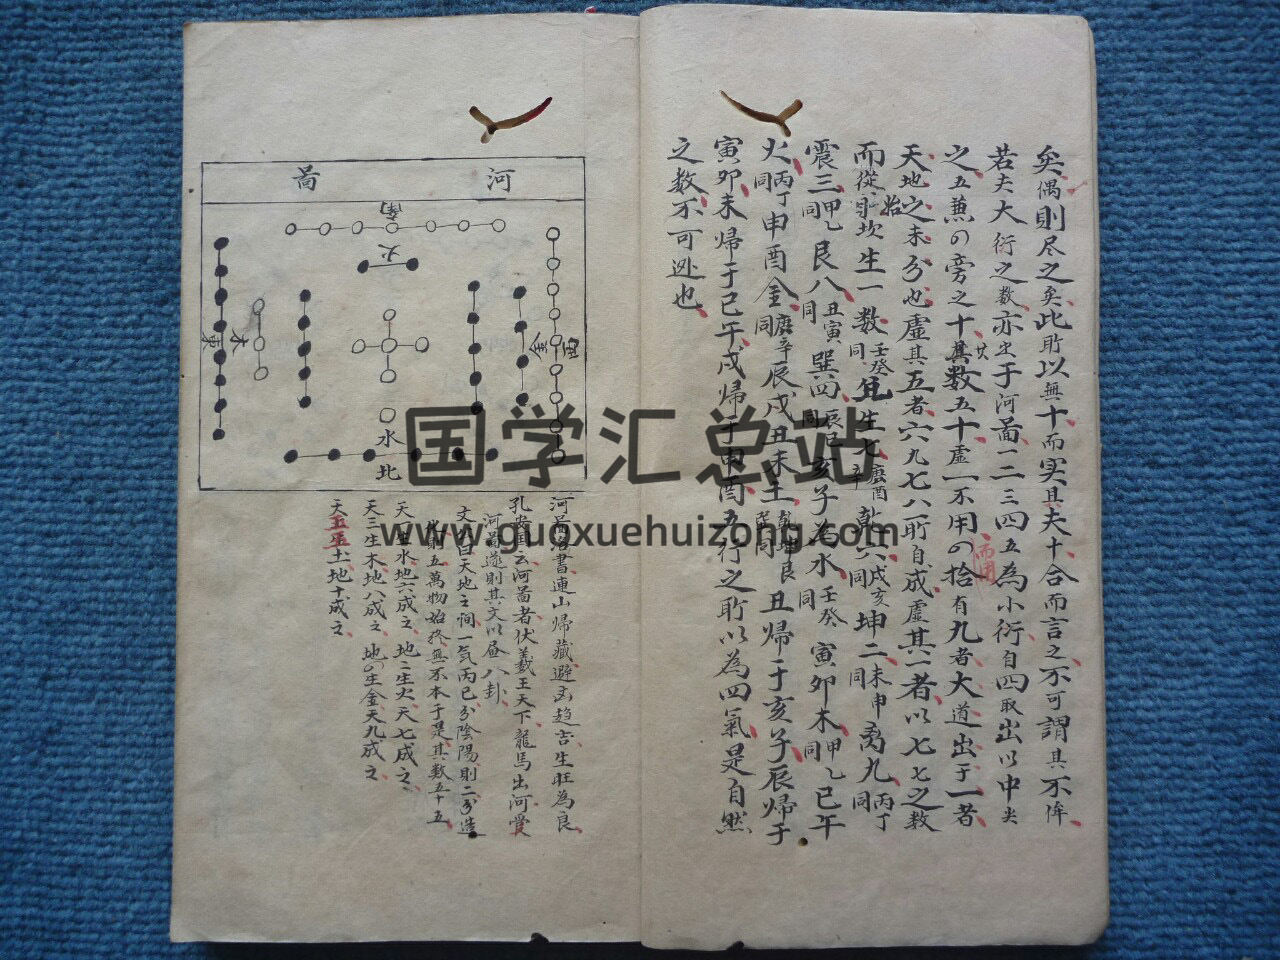 矣偶則尽之矣此所以無十而实其夫十合而言之不可謂其不侔
若夫大衍之数亦宝于河啚一二三四五為小衍自四取出以中央
之五兼の旁之十其数五十虚一不用の拾有九者大道出于一者
共
而用
天地之未分也虚其五者六九七八所自成虚其一者以七七之数
而從坎生一数壬癸同兌生七庚酉辛乾六戌亥同坤二未申同离九丙丁同
始
震三甲乙同艮八丑寅同巽四辰巳同亥子為水壬癸同寅卯木甲乙同巳午
火丙丁同申酉金庚辛同辰戌丑未土乾坤艮巽同丑歸于亥子辰歸于
寅卯未歸于巳午戌歸于申酉五行之所以為四氣是自然
之数不可逊也
河啚
南
火
東
木
金
西
水
北
河啚洛書連山歸藏避凶趋吉生旺為良
孔安国云河啚者伏羲王天下龍馬出河爰
河啚遂則其文以画八卦
文公曰天地之间一気而已分陰陽則二分造
化則五萬物始终無不本于是其数五十五
天一生水地六成之地二生火天七成之
天三生木地八成之地の生金天九成之
天五生土地十成之
国学汇总站
www.guoxuehuizong.com